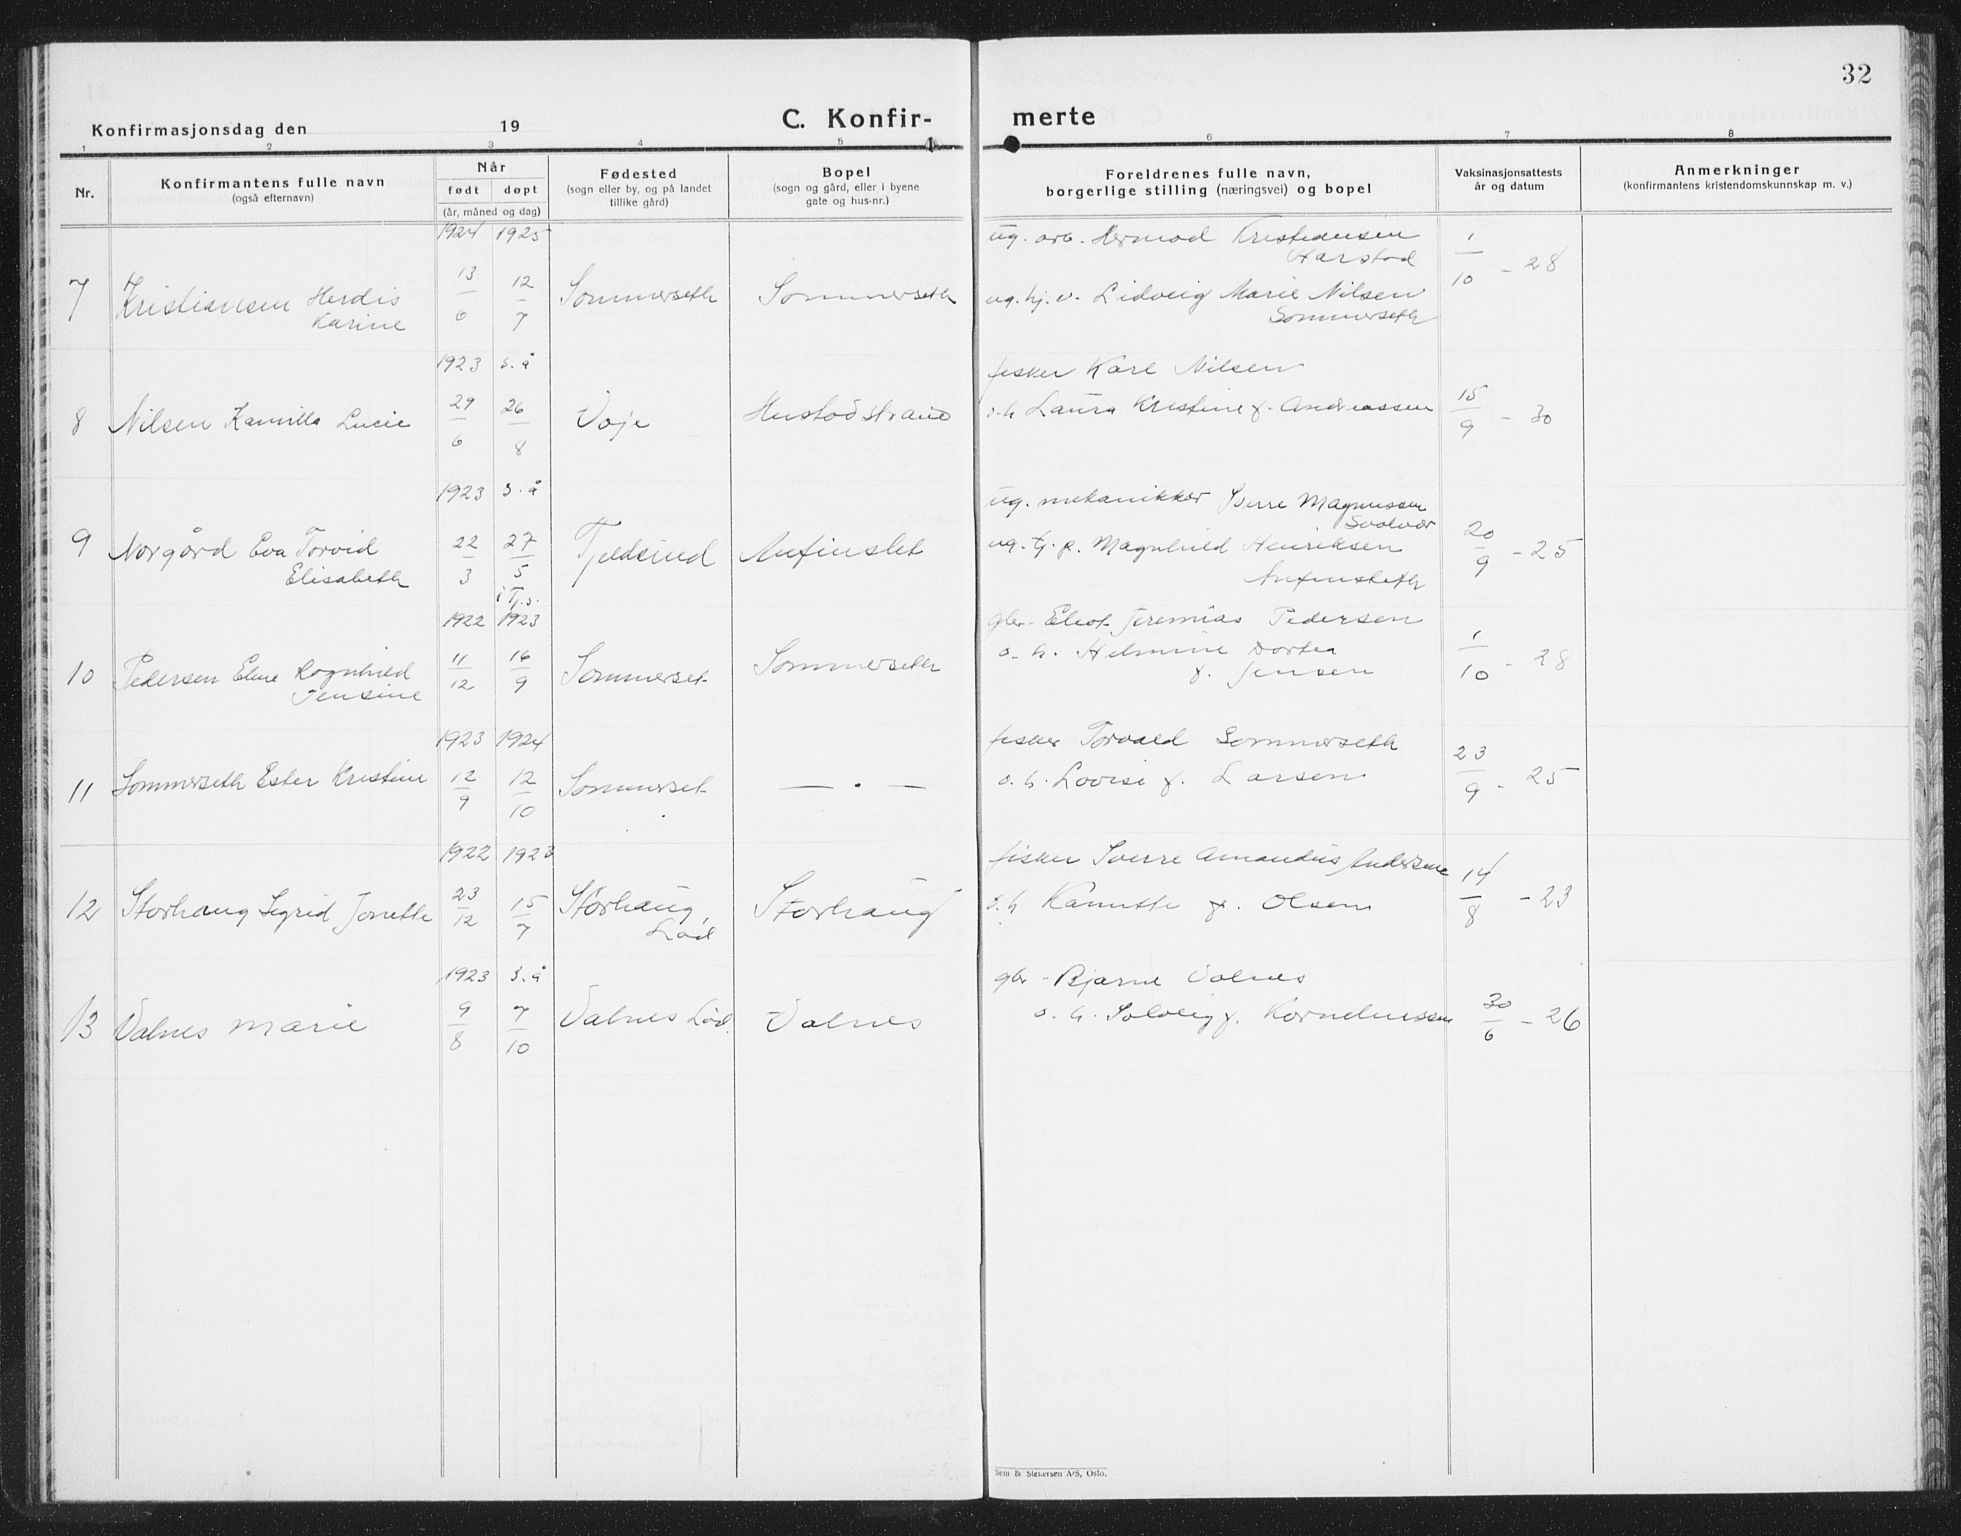 32
C. Konfir-
merte
Konfirmasjonsdag den 19
1 2 3 4 5 6 7 8
Nr.
Konfirmantens fulle navn
(også efternavn)
Når
født døpt
(år, måned og dag)
Fødested
(sogn eller by, og på landet
tillike gård)
Bopel
(sogn og gård, eller i byene
gate og hus-nr.)
Foreldrenes fulle navn,
borgerlige stilling (næringsvei) og bopel
Vaksinasjonsattests
år og datum
Anmerkninger
(konfirmantens kristendomskunnskap m. v.)
1924 1925 ug. arb. Hermod Kristiansen
Harstad
7 Kristiansen Herdis 13/6 12/7 Sommerseth Sommerseth ug. hj. v. Lidveig Marie Nilsen 1/10 - 28
Karine Sommerseth
1923 s. å fisker Karl Nilsen
8 Nilsen Kamilla Lucie 29/6 26/8 Voje Hustadstrand o. h Laura Kristine f. Andreassen 15/9 - 30
1923 s. å ug. mekanikker Sverre Magnussen
Svolvær
9 Norgård Eva Torvid 22/3 27/5 Tjeldsund Anfinslet ug. tj. p. Magnhild Henriksen 20/9 - 25
Elisabeth i Tj.s. Anfinsleth
1922 1923 gbr. Eliot Jeremias Pedersen
10 Pedersen Eline Ragnhild 11/12 16/9 Sommerset Sommerseth o. h. Helmine Dortea 1/10 - 28
Jensine f. Jensen
1923 1924 fisker Torvald Sommerseth
11 Sommerseth Ester Kristine 12/9 12/10 Sommerset — . — o. h. Lovise f. Larsen 23/9 - 25
1922 1923 fisker Sverre Amandus Andersen
12 Storhaug Sigrid Jorette 23/12 15/7 Storhaug, Storhaug o. h Kanutte f. Olsen 14/8 - 23
Lød
1923 s. å gbr. Bjarne Valnes
13 Valnes Marie 9/8 7/10 Valnes Lød. Valnes o. h. Solveig f. Korneliussen 30/6 - 26
Sem & Stenersen A/S, Oslo.